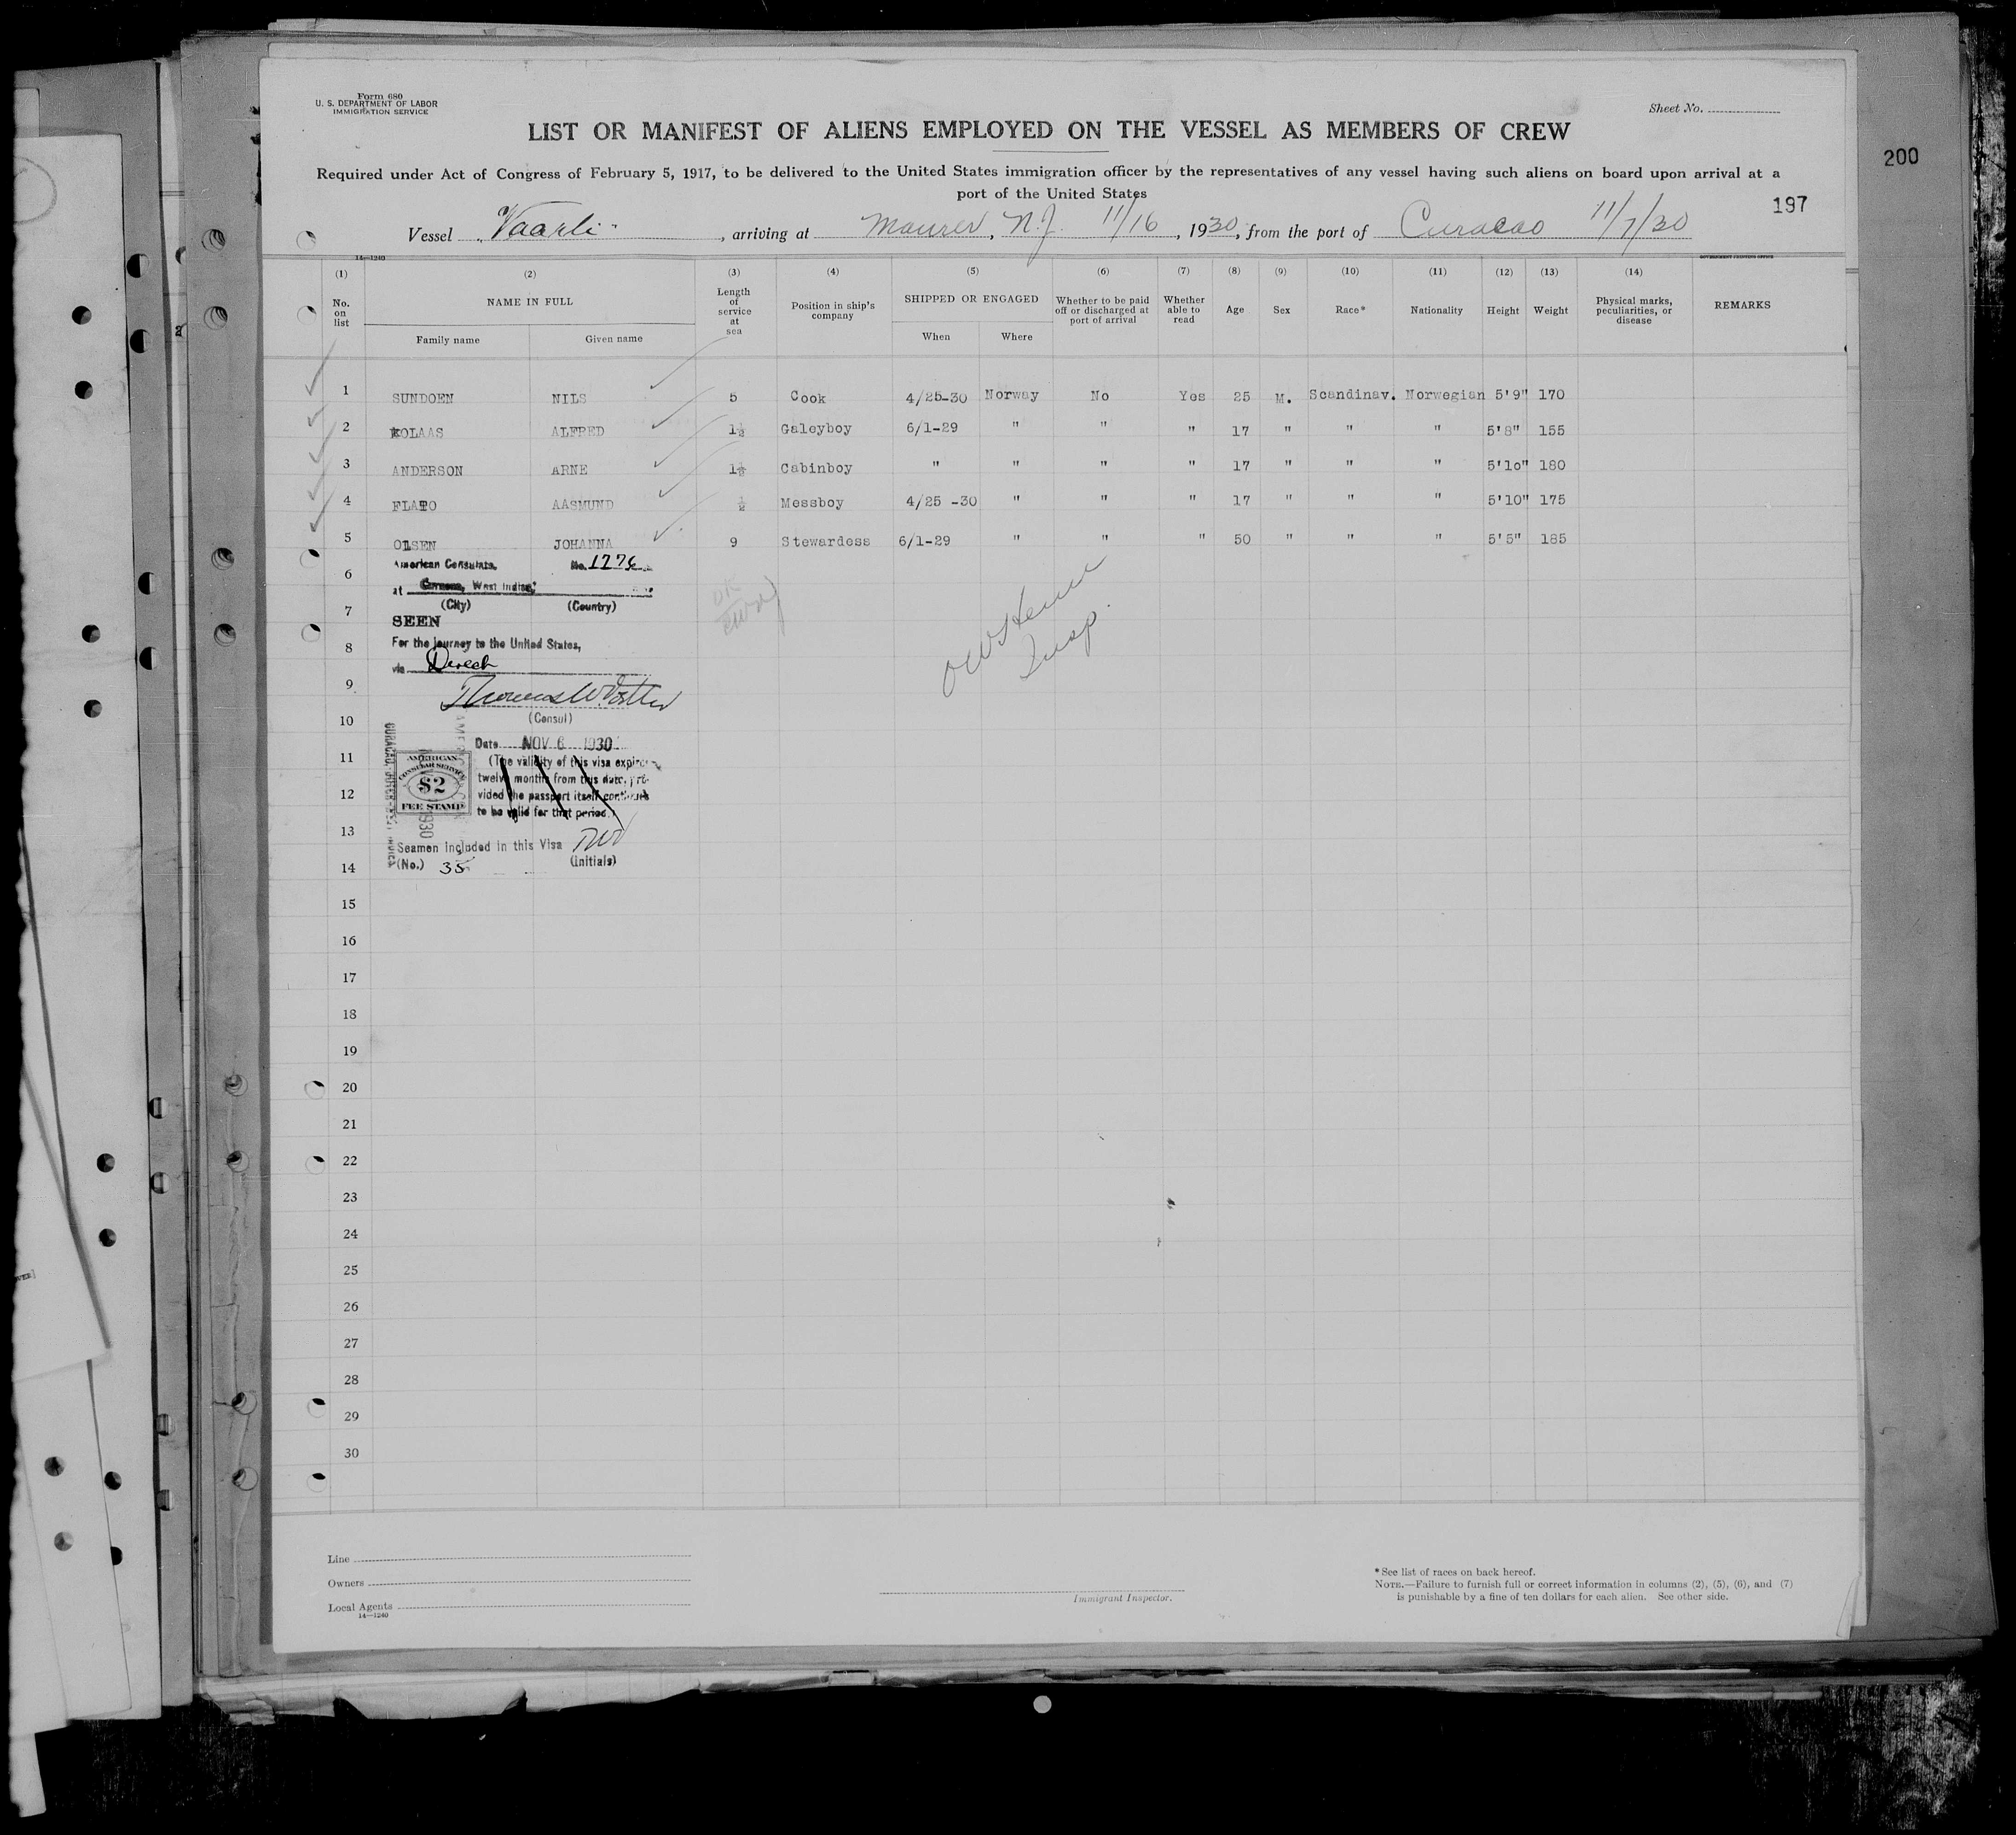 Form 680
U. S. DEPARTMENT OF LABOR
IMMIGRATION SERVICE
Sheet No.
LIST OR MANIFEST OF ALIENS EMPLOYED ON THE VESSEL AS MEMBERS OF CREW
200
Required under Act of Congress of February 5, 1917, to be delivered to the United States immigration officer by the representatives of any vessel having such aliens on board upon arrival at a
port of the United States
197
Vessel "Vaarli", arriving at Maurer, N.J. 11/16, 1930, from the port of Curacao 11/7/30
14—1240
GOVERNMENT PRINTING OFFICE
(1) (2) (3) (4) (5) (6) (7) (8) (9) (10) (11) (12) (13) (14)
No. on list NAME IN FULL Length of service at sea Position in ship's company SHIPPED OR ENGAGED Whether to be paid off or discharged at port of arrival Whether able to read Age Sex Race* Nationality Height Weight Physical marks, peculiarities, or disease REMARKS
Family name Given name When Where
1 SUNDOEN NILS 5 Cook 4/25-30 Norway No Yes 25 M. Scandinav. Norwegian 5'9" 170
2 KOLAAS ALFRED 1½ Galeyboy 6/1-29 " " " 17 " " " 5'8" 155
3 ANDERSON ARNE 1½ Cabinboy " " " " 17 " " " 5'10" 180
4 FLATO AASMUND ½ Messboy 4/25 -30 " " " 17 " " " 5'10" 175
5 OLSEN JOHANNA 9 Stewardess 6/1-29 " " " 50 " " " 5'5" 185
American Consulate, No. 1776
6
at Curacao, West Indies
(City) (Country)
7
SEEN
8
For the journey to the United States,
via Direct
9
10
(Consul)
Date NOV 6 1930
11
(The validity of this visa expires
twelve months from this date, pro-
12
vided the passport itself continues
to be valid for that period.)
AMERICAN
CONSULAR SERVICE
$2
FEE STAMP
13
Seamen included in this Visa
14
(No.) 35 (Initials)
OK
Insp.
15
16
17
18
19
20
21
22
23
24
25
26
27
28
29
30
Line
Owners
Local Agents
14—1240
Immigrant Inspector.
*See list of races on back hereof.
NOTE.—Failure to furnish full or correct information in columns (2), (5), (6), and (7)
is punishable by a fine of ten dollars for each alien. See other side.